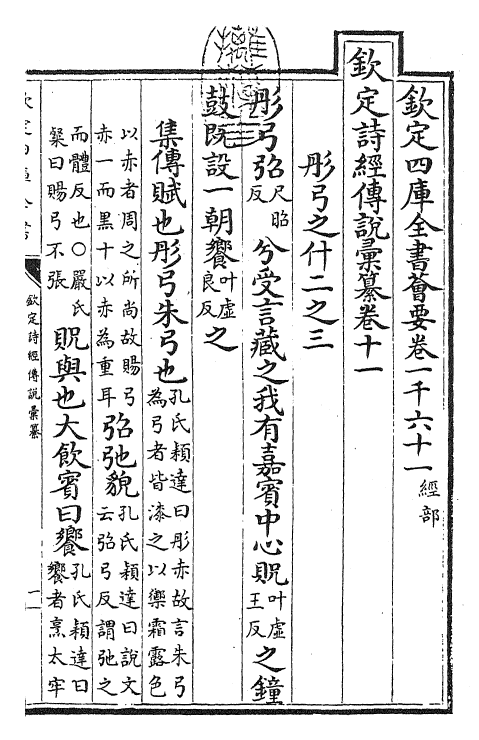 欽定四庫全書薈要卷一千六十一 經部
欽定詩經傳說彙纂卷十一
彤弓之什二之三
彤弓弨尺昭反兮受言藏之我有嘉賓中心貺叶虛王反之鐘
鼓既設一朝饗叶虛良反之
集傳賦也彤弓朱弓也孔氏穎達曰彤赤故言朱弓為弓者皆漆之以禦霜露色
以赤者周之所尚故賜弓赤一而黑十以赤為重耳弨弛貌孔氏穎達曰說文云弨弓反謂弛之
而體反也○嚴氏粲曰賜弓不張貺與也大飲賓曰饗孔氏穎達曰饗者烹太牢
欽定詩經傳說彙纂